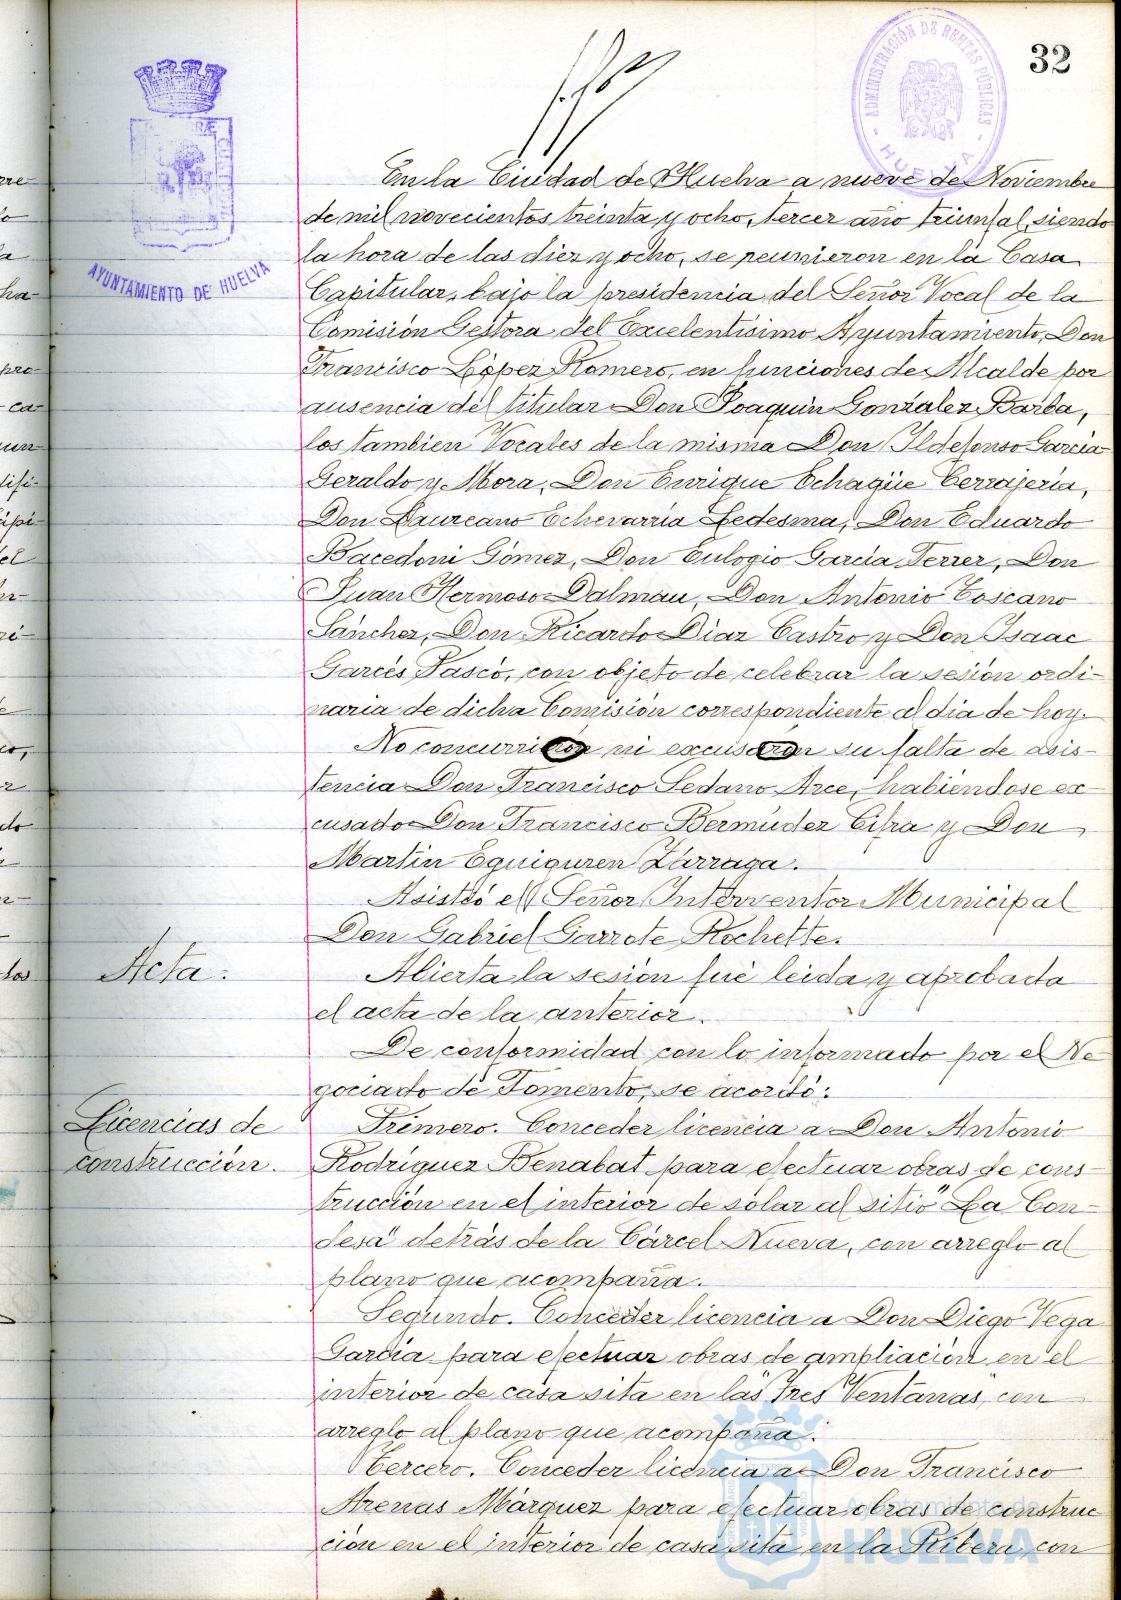 32
ADMINISTRACIÓN DE RENTAS PÚBLICAS
HUELVA
AYUNTAMIENTO DE HUELVA
En la Ciudad de Huelva a nueve de Noviembre
de mil novecientos treinta y ocho, tercer año triunfal, siendo
la hora de las diez y ocho, se reunieron en la Casa
Capitular, bajo la presidencia del Señor Vocal de la
Comisión Gestora del Excelentísimo Ayuntamiento, Don
Francisco López Romero, en funciones de Alcalde por
ausencia del titular Don Joaquín González Barba,
los tambien Vocales de la misma Don Ildefonso García
Geraldo y Mora, Don Enrique Echagüe Cerrajería,
Don Laureano Echevarría Ledesma, Don Eduardo
Bacedoni Gómez, Don Eulogio García Ferrer, Don
Juan Hermoso Dalmau, Don Antonio Toscano
Sánchez, Don Ricardo Díaz Castro y Don Isaac
Garcés Pascó, con objeto de celebrar la sesión ordi-
naria de dicha Comisión correspondiente al día de hoy.
No concurrieron ni excusaron su falta de asis-
tencia Don Francisco Sedano Arce, habiéndose ex-
cusado Don Francisco Bermúdez Cifra y Don
Martín Eguiguren Zárraga.
Asistió el Señor Interventor Municipal
Don Gabriel Garrote Rochette.
Acta.
Abierta la sesión fué leida y aprobada
el acta de la anterior.
De conformidad con lo informado por el Ne
gociado de Fomento, se acordó:
Licencias de
construcción.
Primero. Conceder licencia a Don Antonio
Rodríguez Benabat para efectuar obras de cons-
trucción en el interior de solar al sitio "La Con-
desa" detrás de la Cárcel Nueva, con arreglo al
plano que acompaña.
Segundo. Conceder licencia a Don Diego Vega
García para efectuar obras de ampliación en el
interior de casa sita en las "Tres Ventanas", con
arreglo al plano que acompaña.
Tercero. Conceder licencia a Don Francisco
Arenas Márquez para efectuar obras de construc
ción en el interior de casa sita en la Ribera, con
Ayuntamiento de
HUELVA